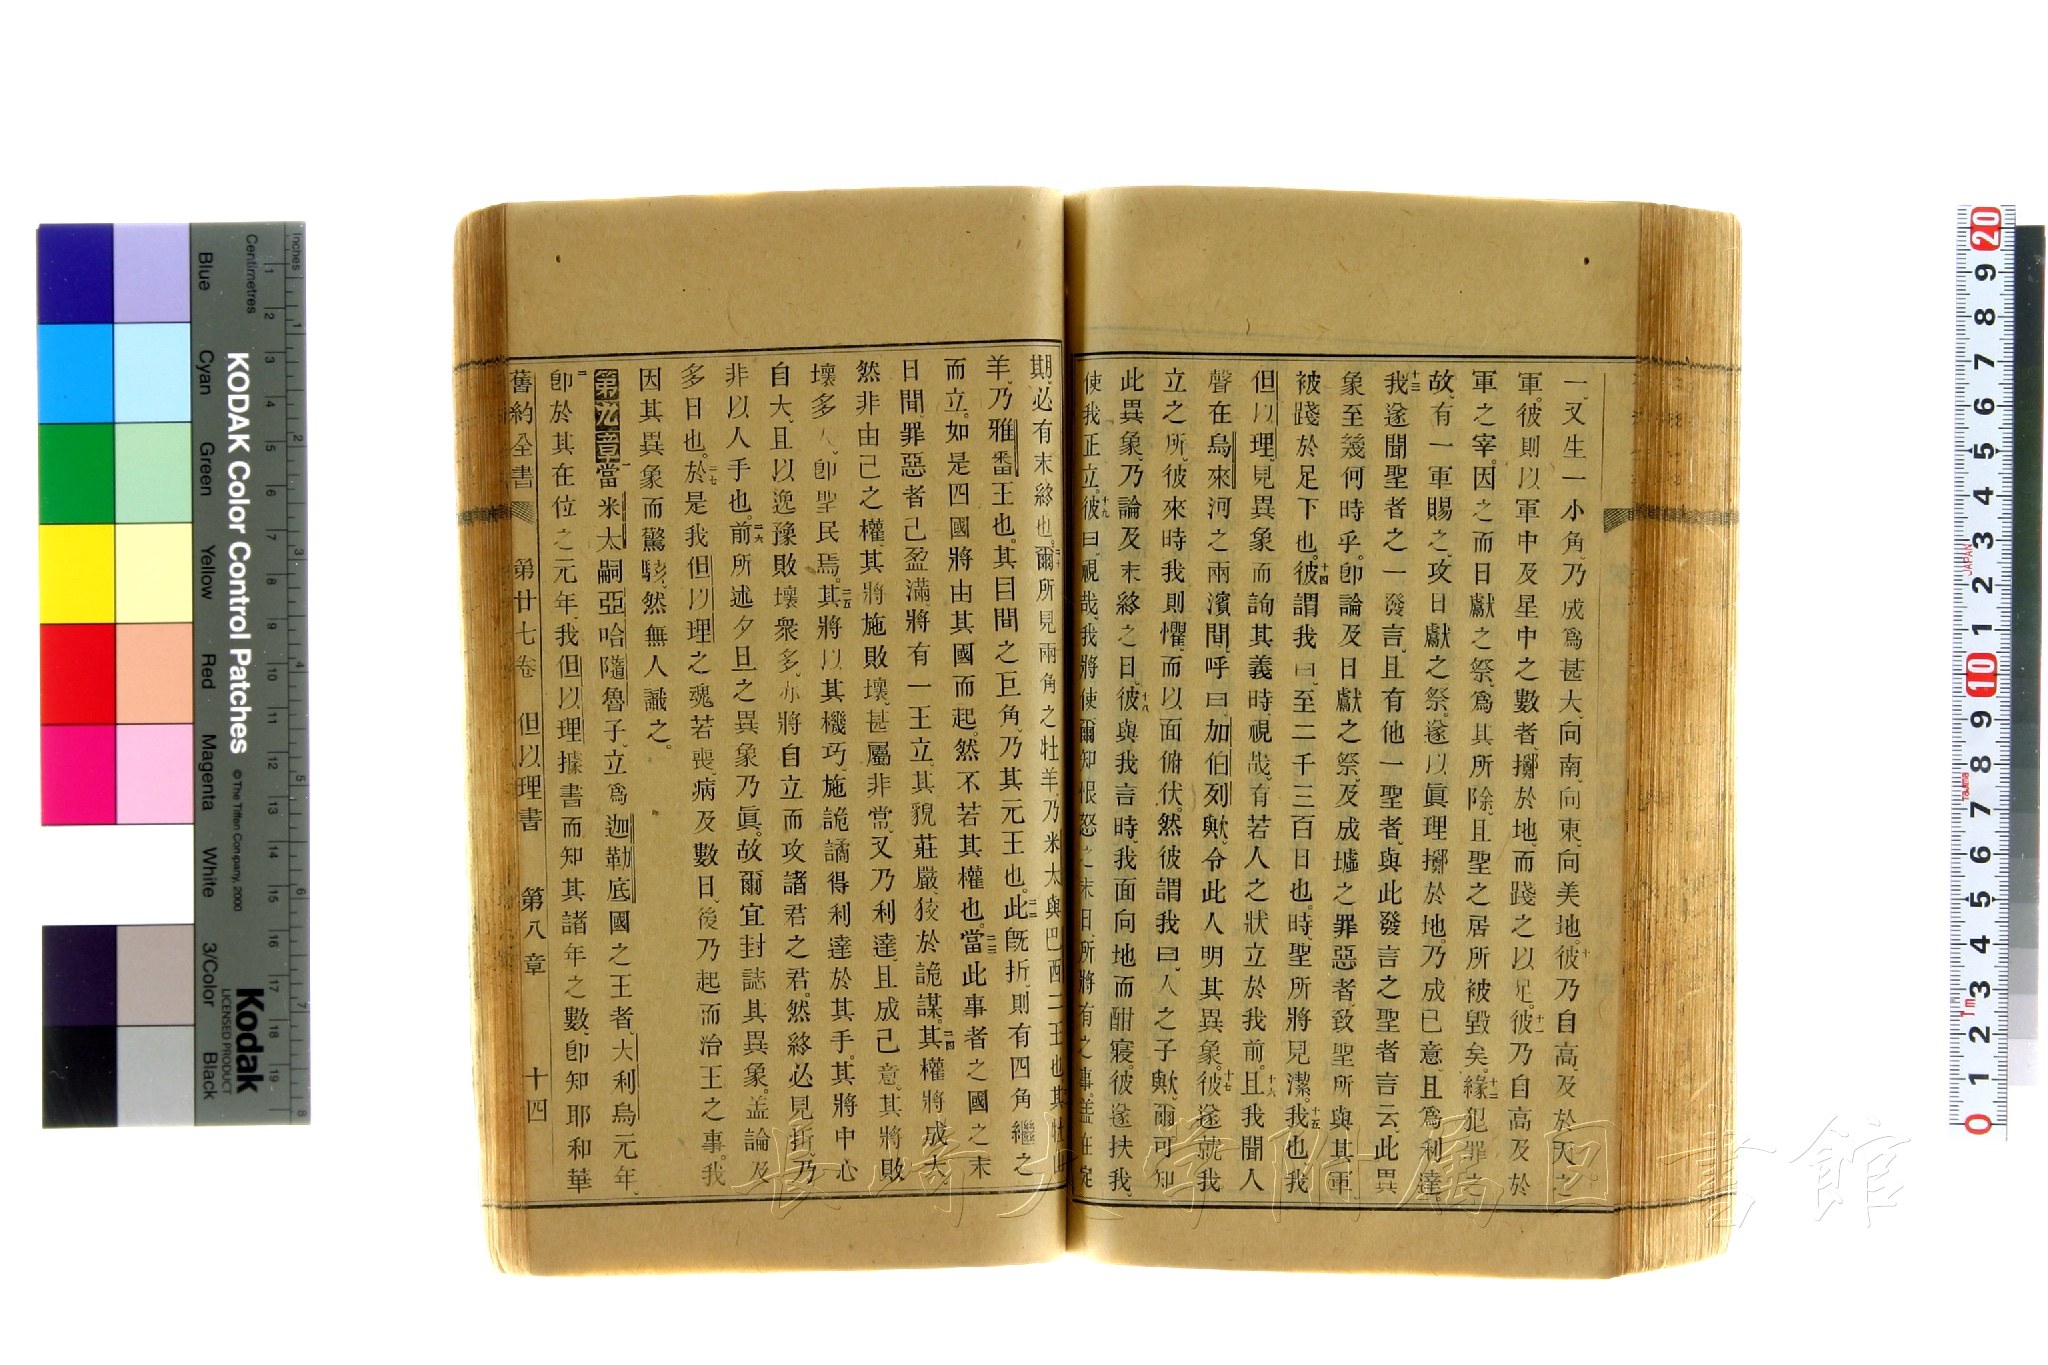 一、又生一小角、乃成爲甚大、向南、向東、向美地。十彼乃自高、及於天之
軍。彼則以軍中及星中之數者、擲於地、而踐之以足。十一彼乃自高及於
軍之宰。因之而日獻之祭、爲其所除、且聖之居所被毀矣。十二緣犯罪之
故、有一軍賜之、攻日獻之祭。遂以眞理擲於地。乃成已意、且爲利達。
十三我遂聞聖者之一發言、且有他一聖者、與此發言之聖者言云、此異
象至幾何時乎。卽論及日獻之祭、及成墟之罪惡者、致聖所與其軍
被踐於足下也。十四彼謂我曰、至二千三百日也。時、聖所將見潔。十五我也我
但以理、見異象而詢其義時、視哉、有若人之狀立於我前。十六且我聞人
聲在烏來河之兩濱間、呼曰、加伯列歟、令此人明其異象。十七彼遂就我
立之所。彼來時我則懼、而以面俯伏。然彼謂我曰、人之子歟、爾可知
此異象、乃論及末終之日。十八彼與我言時、我面向地而酣寢。彼遂扶我、
使我正立。十九彼曰、視哉、我將使爾知恨怒之末日、所將有之事。盖在定
期、必有末終也。二十爾所見兩角之牡羊、乃米太與巴西二王也其牡山
羊、乃雅番王也。其目間之巨角、乃其元王也。二二此旣折、則有四角繼之
而立。如是四國將由其國而起。然不若其權也。二三當此事者之國之末
日間、罪惡者己盈滿、將有一王立、其貌莊嚴、狡於詭謀。二四其權將成大
然非由己之權、其將施敗壞、甚屬非常、又乃利達、且成己意、其將敗
壞多人、卽聖民焉。二五其將以其機巧、施詭譎得利達於其手。其將中心
自大、且以逸豫敗壞衆多、亦將自立而攻諸君之君。然終必見折、乃
非以人手也。二六前所述夕旦之異象乃眞。故爾宜封誌其異象。盖論及
多日也。二七於是我但以理之魂若喪、病及數日、後乃起而治王之事。我
因其異象而驚駭、然無人識之。
第九章一當米太嗣亞哈隨魯子、立爲迦勒底國之王者、大利烏元年、
二卽於其在位之元年、我但以理據書而知其諸年之數、卽知耶和華
舊約全書 第廿七卷 但以理書 第八章 十四
長崎大学附属図書館
KODAK Color Control Patches
© The Tiffen Company, 2000
Kodak
LICENSED PRODUCT
Inches
Centimetres
Blue Cyan Green Yellow Red Magenta White 3/Color Black